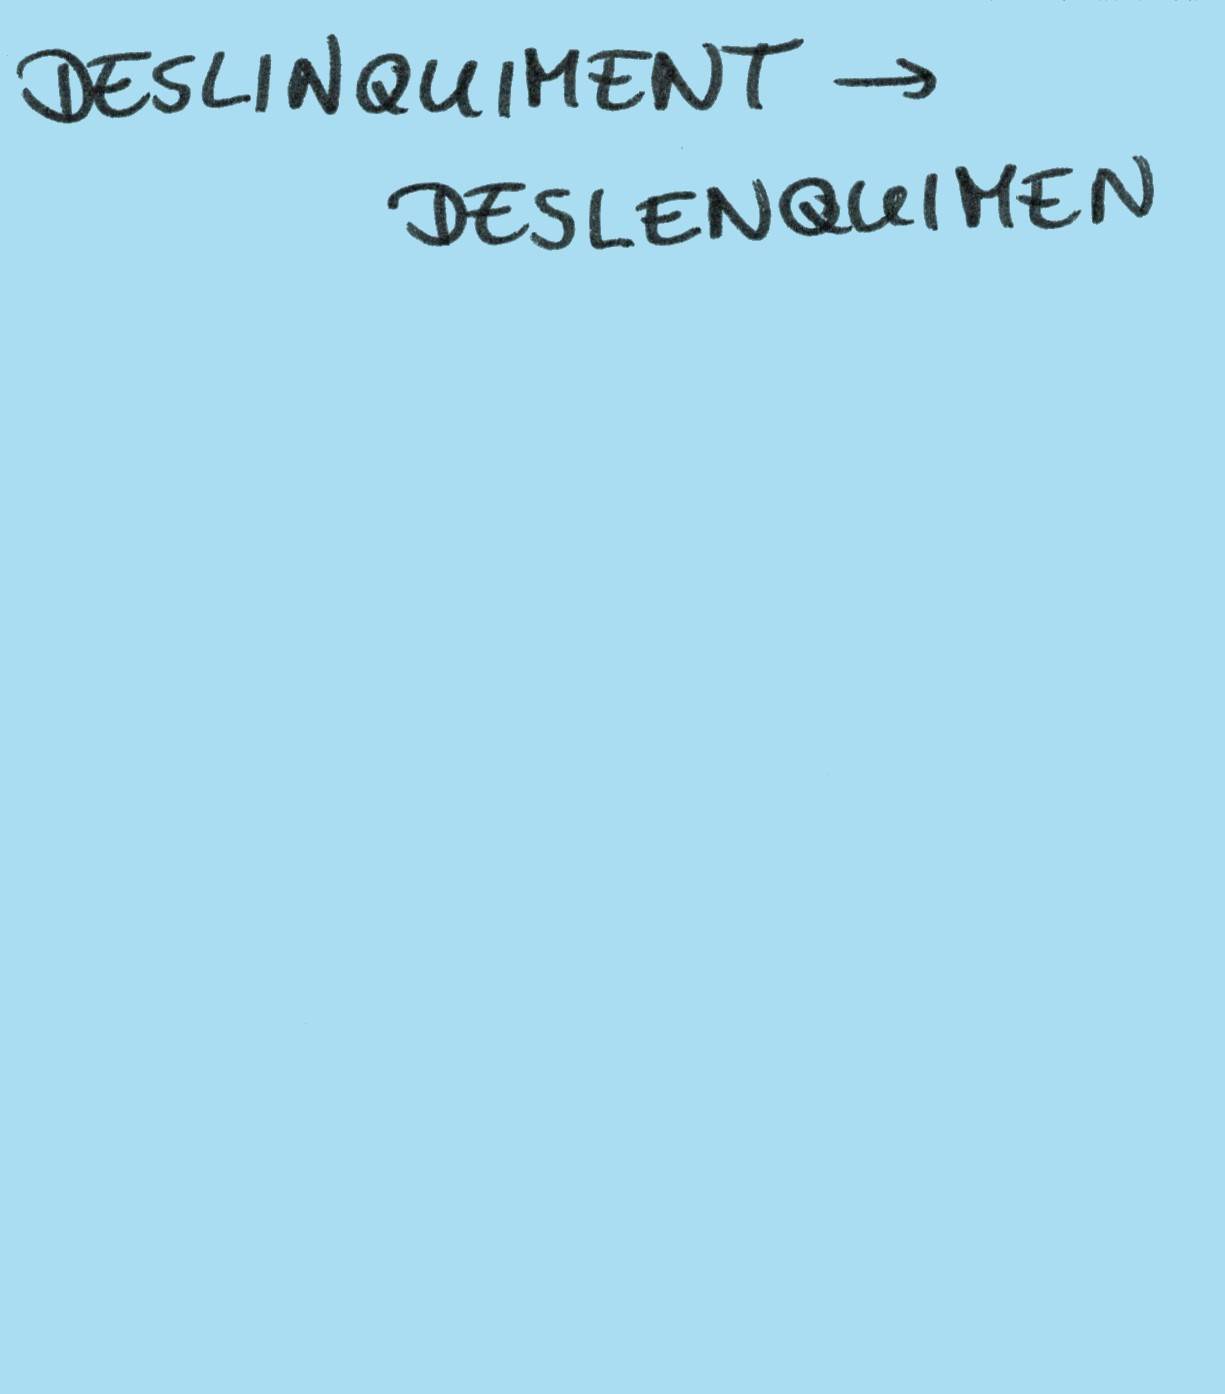 DESLINQUIMENT →
DESLENQUIMEN